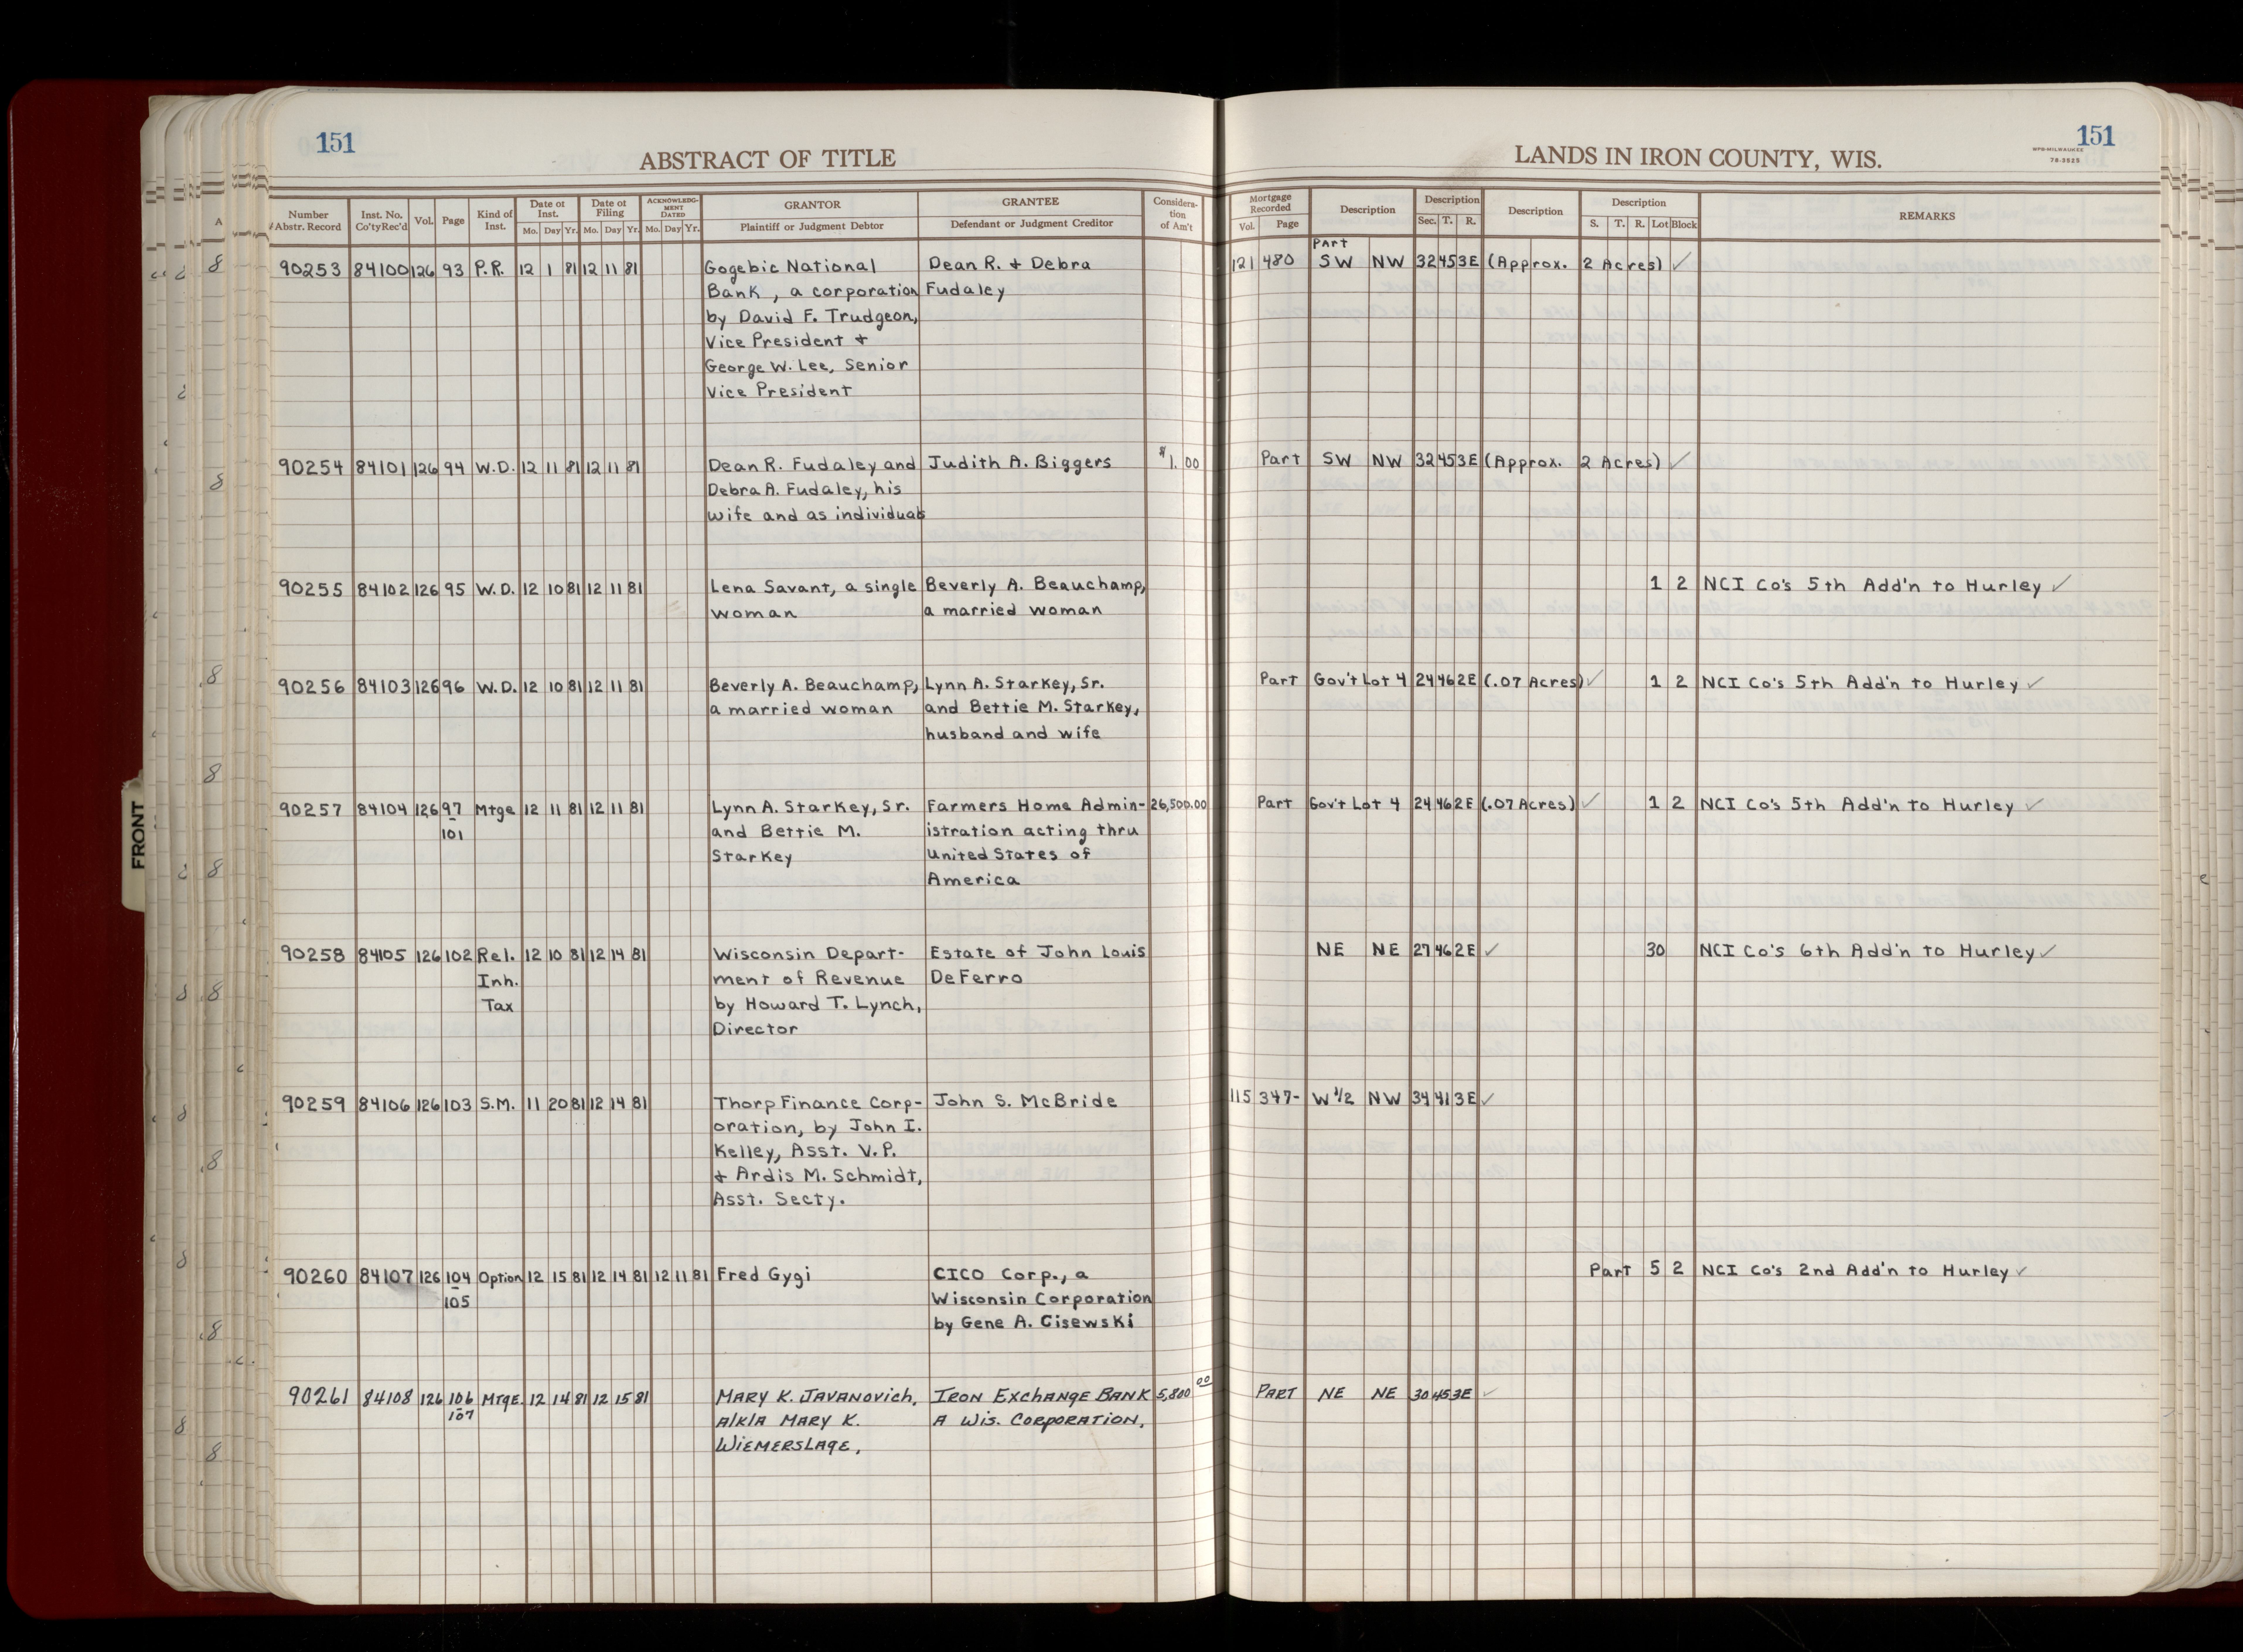 151
ABSTRACT OF TITLE
LANDS IN IRON COUNTY, WIS.
151
WPB-MILWAUKEE
78-3525
FRONT
A
Number Abstr. Record | Inst. No. Co'ty Rec'd | Vol. | Page | Kind of Inst. | Date of Inst. Mo. Day Yr. | Date of Filing Mo. Day Yr. | ACKNOWLEDGMENT DATED Mo. Day Yr. | GRANTOR Plaintiff or Judgment Debtor | GRANTEE Defendant or Judgment Creditor | Consideration of Am't | Mortgage Recorded Vol. Page | Description | Description Sec. T. R. | Description | Description S. T. R. Lot Block | REMARKS
Part
90253 84100 126 93 P.R. 12 1 81 12 11 81 Gogebic National Dean R. + Debra 121 480 SW NW 32 45 3E (Approx. 2 Acres) ✓
Bank, a corporation Fudaley
by David F. Trudgeon,
Vice President +
George W. Lee, Senior
Vice President
90254 84101 126 94 W.D. 12 11 81 12 11 81 Dean R. Fudaley and Judith A. Biggers $1.00 Part SW NW 32 45 3E (Approx. 2 Acres) ✓
Debra A. Fudaley, his
wife and as individuals
90255 84102 126 95 W.D. 12 10 81 12 11 81 Lena Savant, a single Beverly A. Beauchamp, 1 2 NCI Co's 5th Add'n to Hurley ✓
woman a married woman
90256 84103 126 96 W.D. 12 10 81 12 11 81 Beverly A. Beauchamp, Lynn A. Starkey, Sr. Part Gov't Lot 4 24 46 2E (.07 Acres) ✓ 1 2 NCI Co's 5th Add'n to Hurley ✓
a married woman and Bettie M. Starkey,
husband and wife
90257 84104 126 97 Mtge 12 11 81 12 11 81 Lynn A. Starkey, Sr. Farmers Home Admin- 26,500.00 Part Gov't Lot 4 24 46 2E (.07 Acres) ✓ 1 2 NCI Co's 5th Add'n to Hurley ✓
-101 and Bettie M. istration acting thru
Starkey United States of
America
90258 84105 126 102 Rel. 12 10 81 12 14 81 Wisconsin Depart- Estate of John Louis NE NE 27 46 2E ✓ 30 NCI Co's 6th Add'n to Hurley ✓
Inh. ment of Revenue DeFerro
Tax by Howard T. Lynch,
Director
90259 84106 126 103 S.M. 11 20 81 12 14 81 Thorp Finance Corp- John S. McBride 115 347- W 1/2 NW 34 41 3E ✓
oration, by John I.
Kelley, Asst. V.P.
+ Ardis M. Schmidt,
Asst. Secty.
90260 84107 126 104 Option 12 15 81 12 14 81 12 11 81 Fred Gygi CICO Corp., a Part 5 2 NCI Co's 2nd Add'n to Hurley ✓
-105 Wisconsin Corporation
by Gene A. Cisewski
90261 84108 126 106 Mtge. 12 14 81 12 15 81 Mary K. Javanovich, Iron Exchange Bank 5,800 00 Part NE NE 30 45 3E ✓
-107 a/k/a Mary K. A Wis. Corporation,
Wiemerslage,